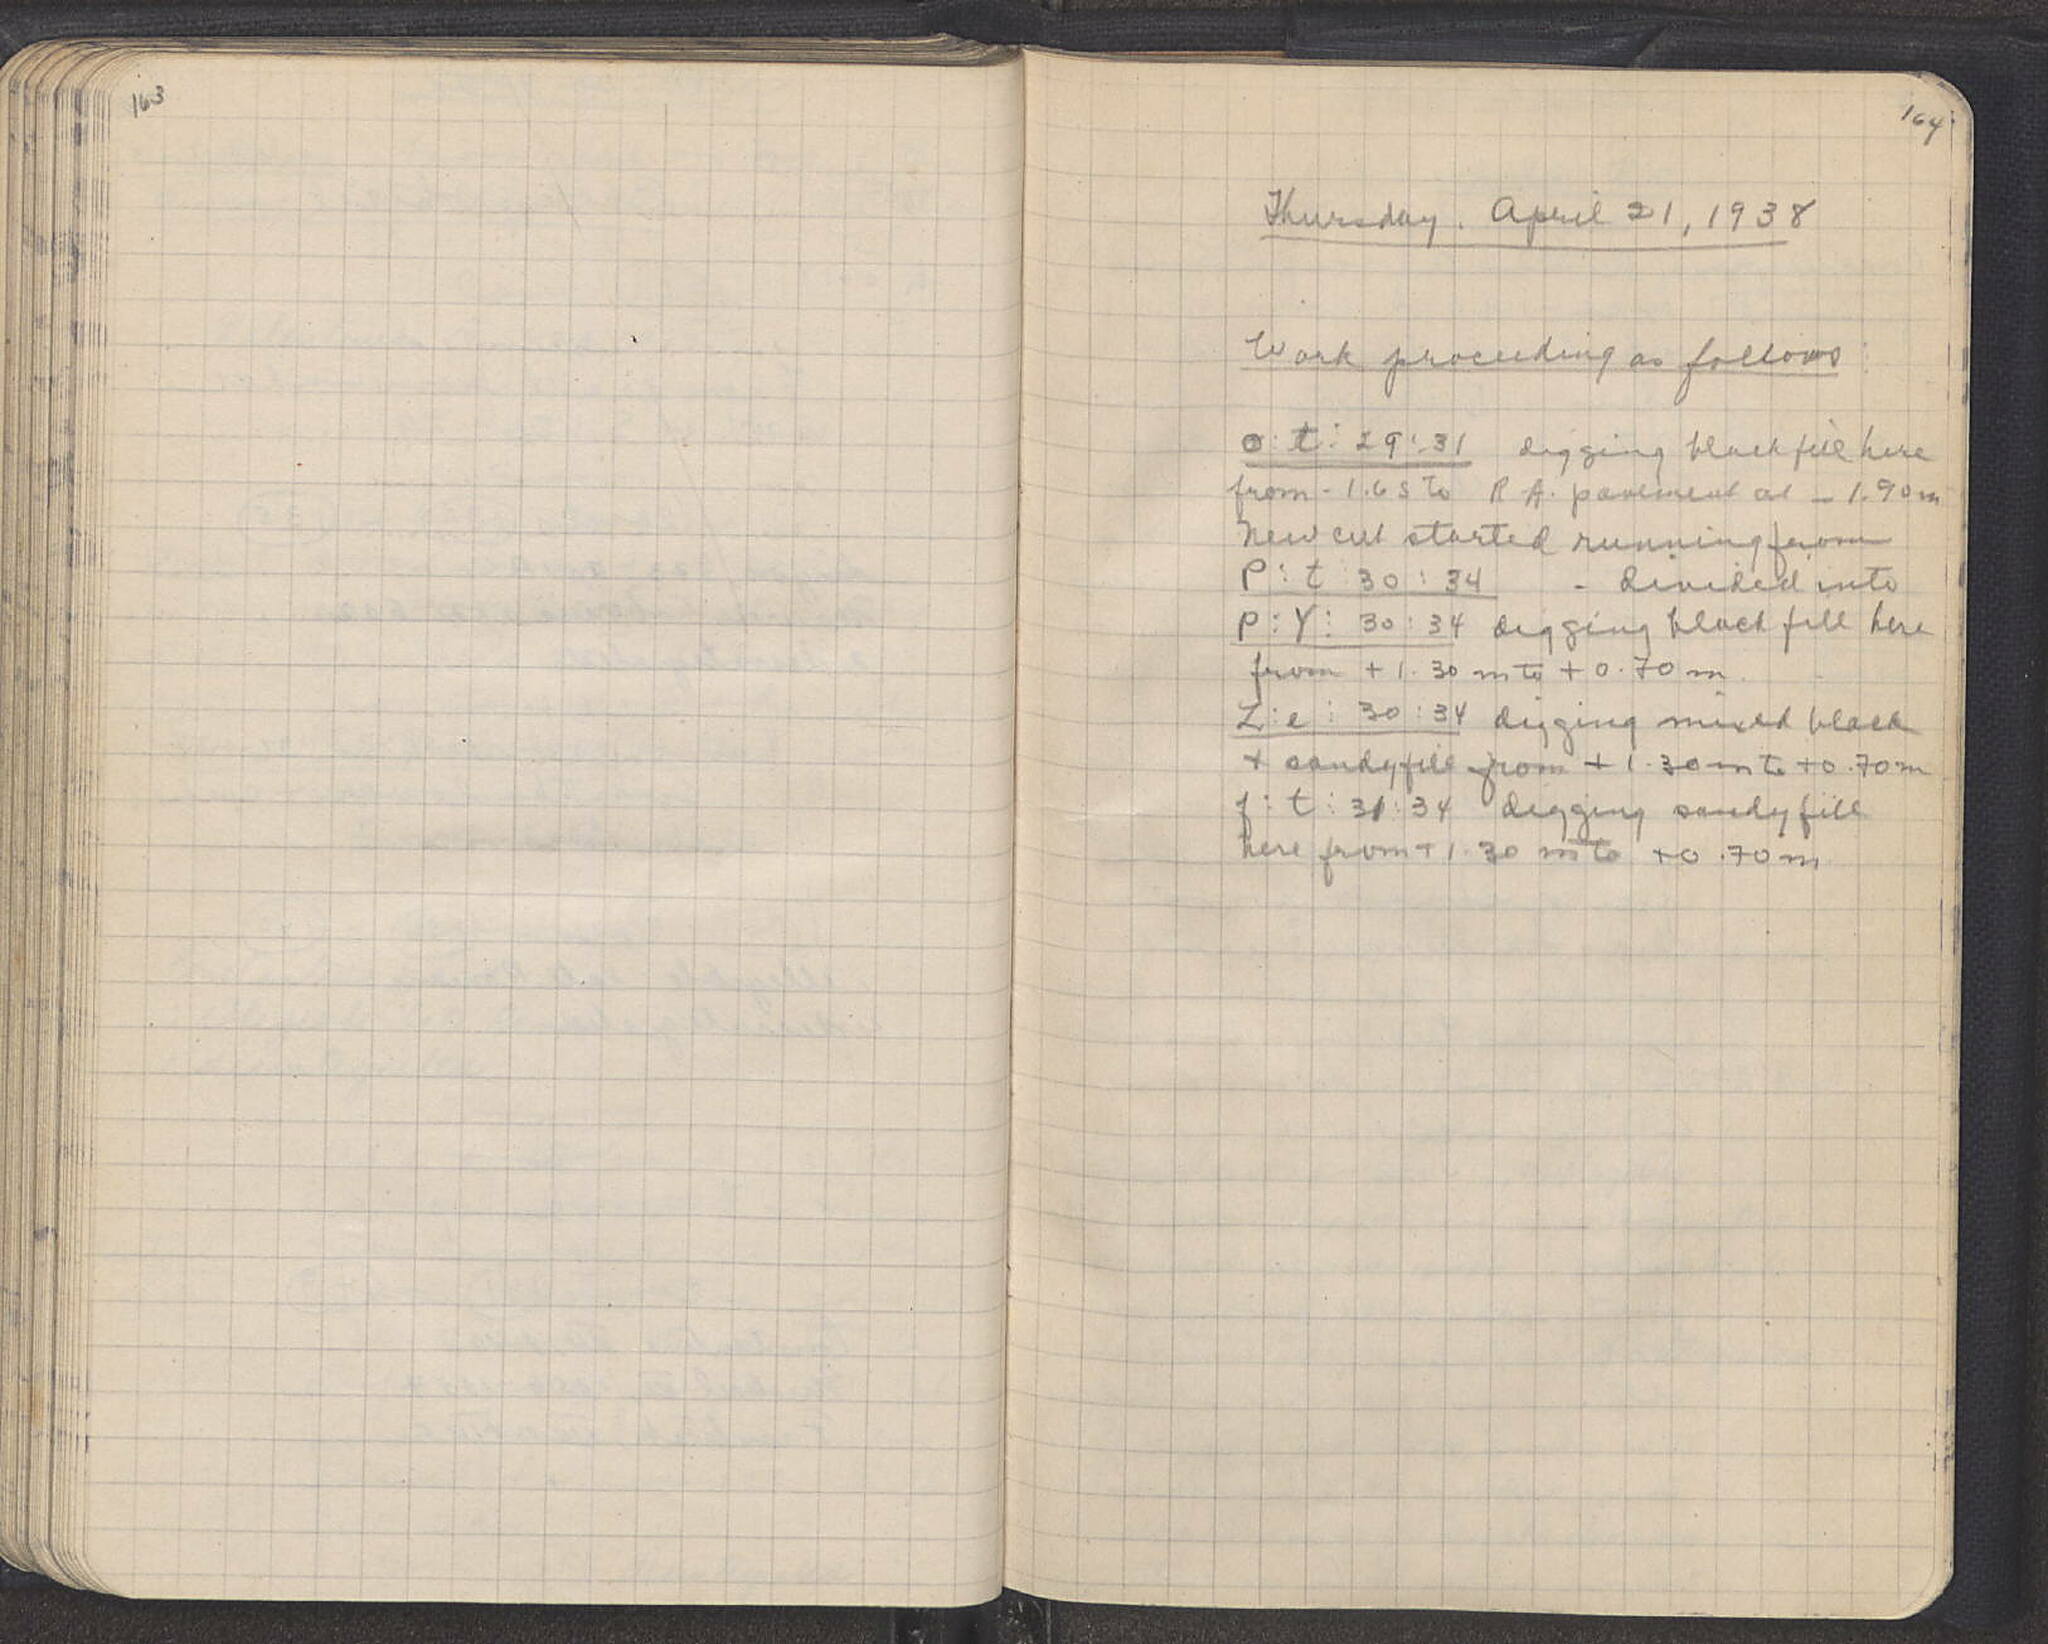 163
164
Thursday. April 21, 1938
Work proceeding as follows:
o:t:29:31 digging black fill here
from -1.65 to R.A. pavement at -1.90m
New cut started running from
P:t:30:34 - divided into
P:Y:30:34 digging black fill here
from +1.30 m to +0.70 m.
Z:e:30:34 digging mixed black
+ sandy fill from +1.30m to +0.70m
f:t:31:34 digging sandy fill
here from +1.30 m to +0.70m